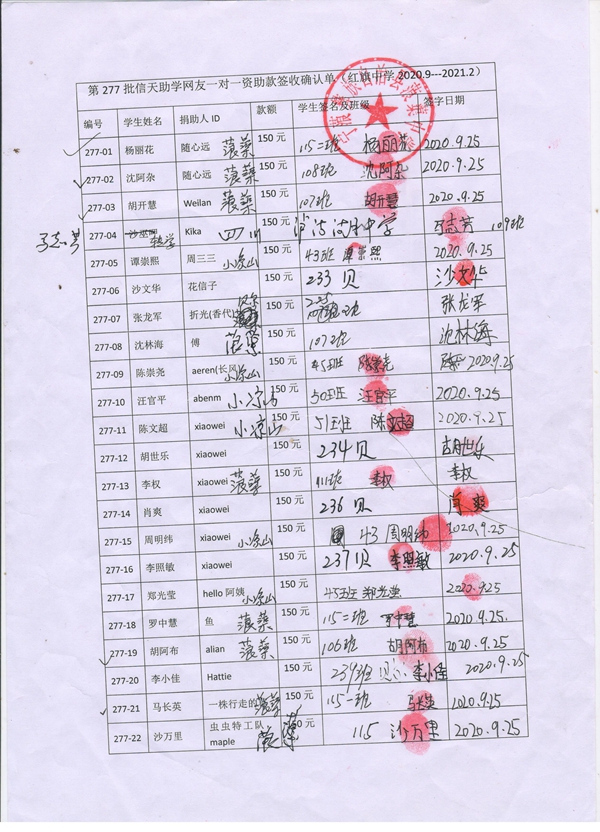 第 277 批信天助学网友一对一资助款签收确认单（红旗中学 2020.9---2021.2）
编号 学生姓名 捐助人 ID 款额 学生签名及班级 签字日期
277-01 杨丽花 随心远 菠萊 150 元 115二班 杨丽花 2020.9.25
277-02 沈阿杂 随心远 菠萊 150 元 108班 沈阿杂 2020.9.25
277-03 胡开慧 Weilan 菠萊 150 元 107班 胡开慧 2020.9.25
马志芳 277-04 转学 Kika 四川 150 元 中学 马志芳 109班
277-05 谭崇熙 周三三 小凉山 150 元 43班 谭崇熙 2020.9.25
277-06 沙文华 花信子 150 元 233 贝 沙文华
277-07 张龙军 折光(香代) 150 元 张龙军
277-08 沈林海 傅 150 元 107班 沈林海
277-09 陈崇尧 aeren(长风) 小凉山 150 元 45班 陈崇尧 2020.9.25
277-10 汪官平 abenm 小凉山 150 元 50班 汪官平 2020.9.25
277-11 陈文超 xiaowei 小凉山 150 元 51班 陈文超 2020.9.25
277-12 胡世乐 xiaowei 150 元 234 贝 胡世乐
277-13 李权 xiaowei 菠萊 150 元 111班 李权 李权
277-14 肖爽 xiaowei 150 元 236 贝 肖爽
277-15 周明纬 xiaowei 小凉山 150 元 43 周明纬 2020.9.25
277-16 李照敏 xiaowei 150 元 237 贝 李照敏 2020.9.25
277-17 郑光莹 hello 阿姨 小凉山 150 元 45班 郑光莹 2020.9.25
277-18 罗中慧 鱼 菠萊 150 元 115二班 罗中慧 2020.9.25.
277-19 胡阿布 alian 菠萊 150 元 106班 胡阿布 2020.9.25
277-20 李小佳 Hattie 150 元 239班 李小佳 2020.9.25
277-21 马长英 一株行走的 菠萊 150 元 115二班 马长英 2020.9.25
277-22 沙万里 虫虫特工队 maple 菠萊 150 元 115 沙万里 2020.9.25